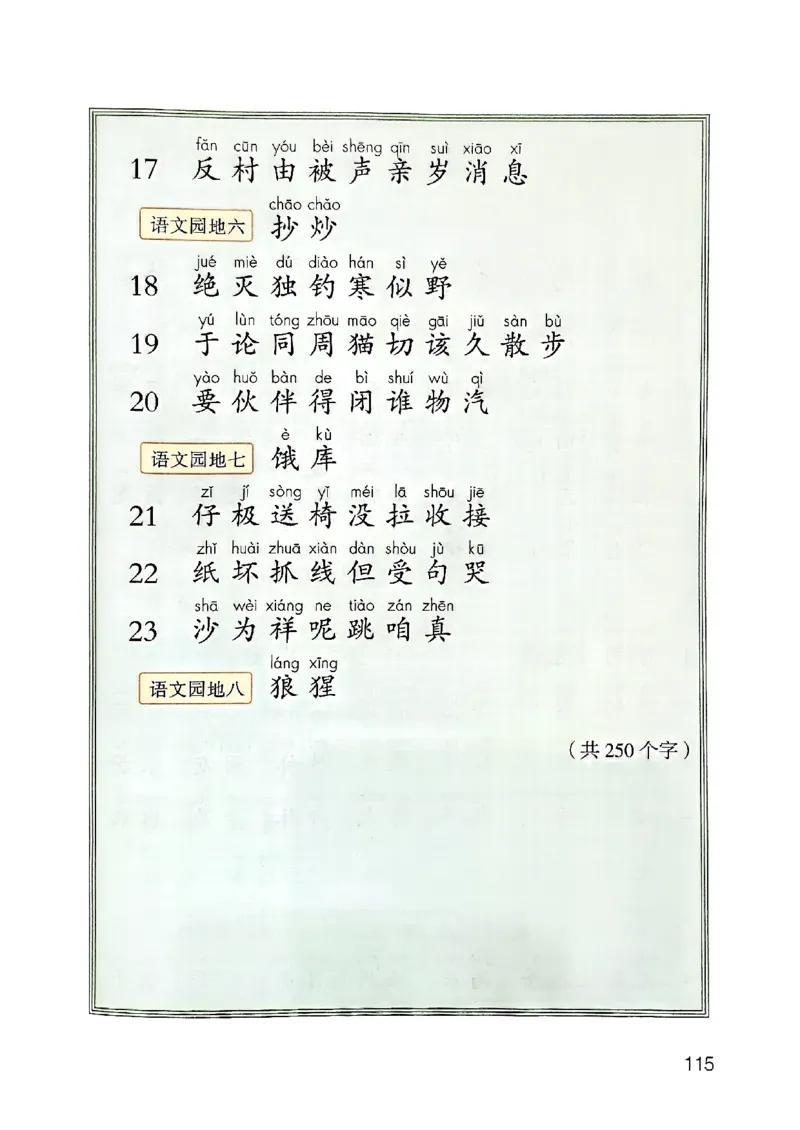 fǎn cūn yóu bèi shēng qīn suì xiāo xī
17 反 村 由 被 声 亲 岁 消 息
chāo chǎo
语文园地六 抄 炒
jué miè dú diào hán sì yě
18 绝 灭 独 钓 寒 似 野
yú lùn tóng zhōu māo qiè gāi jiǔ sàn bù
19 于 论 同 周 猫 切 该 久 散 步
yào huǒ bàn de bì shuí wù qì
20 要 伙 伴 得 闭 谁 物 汽
è kù
语文园地七 饿 库
zǐ jí sòng yǐ méi lā shōu jiē
21 仔 极 送 椅 没 拉 收 接
zhǐ huài zhuā xiàn dàn shòu jù kū
22 纸 坏 抓 线 但 受 句 哭
shā wèi xiáng ne tiào zán zhēn
23 沙 为 祥 呢 跳 咱 真
láng xīng
语文园地八 狼 猩
（共 250 个字）
115